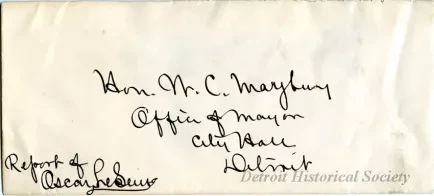 Hon. W. C. Maybury
Office of Mayor
City Hall
Detroit
Report of
Oscar LeSeur
Detroit Historical Society